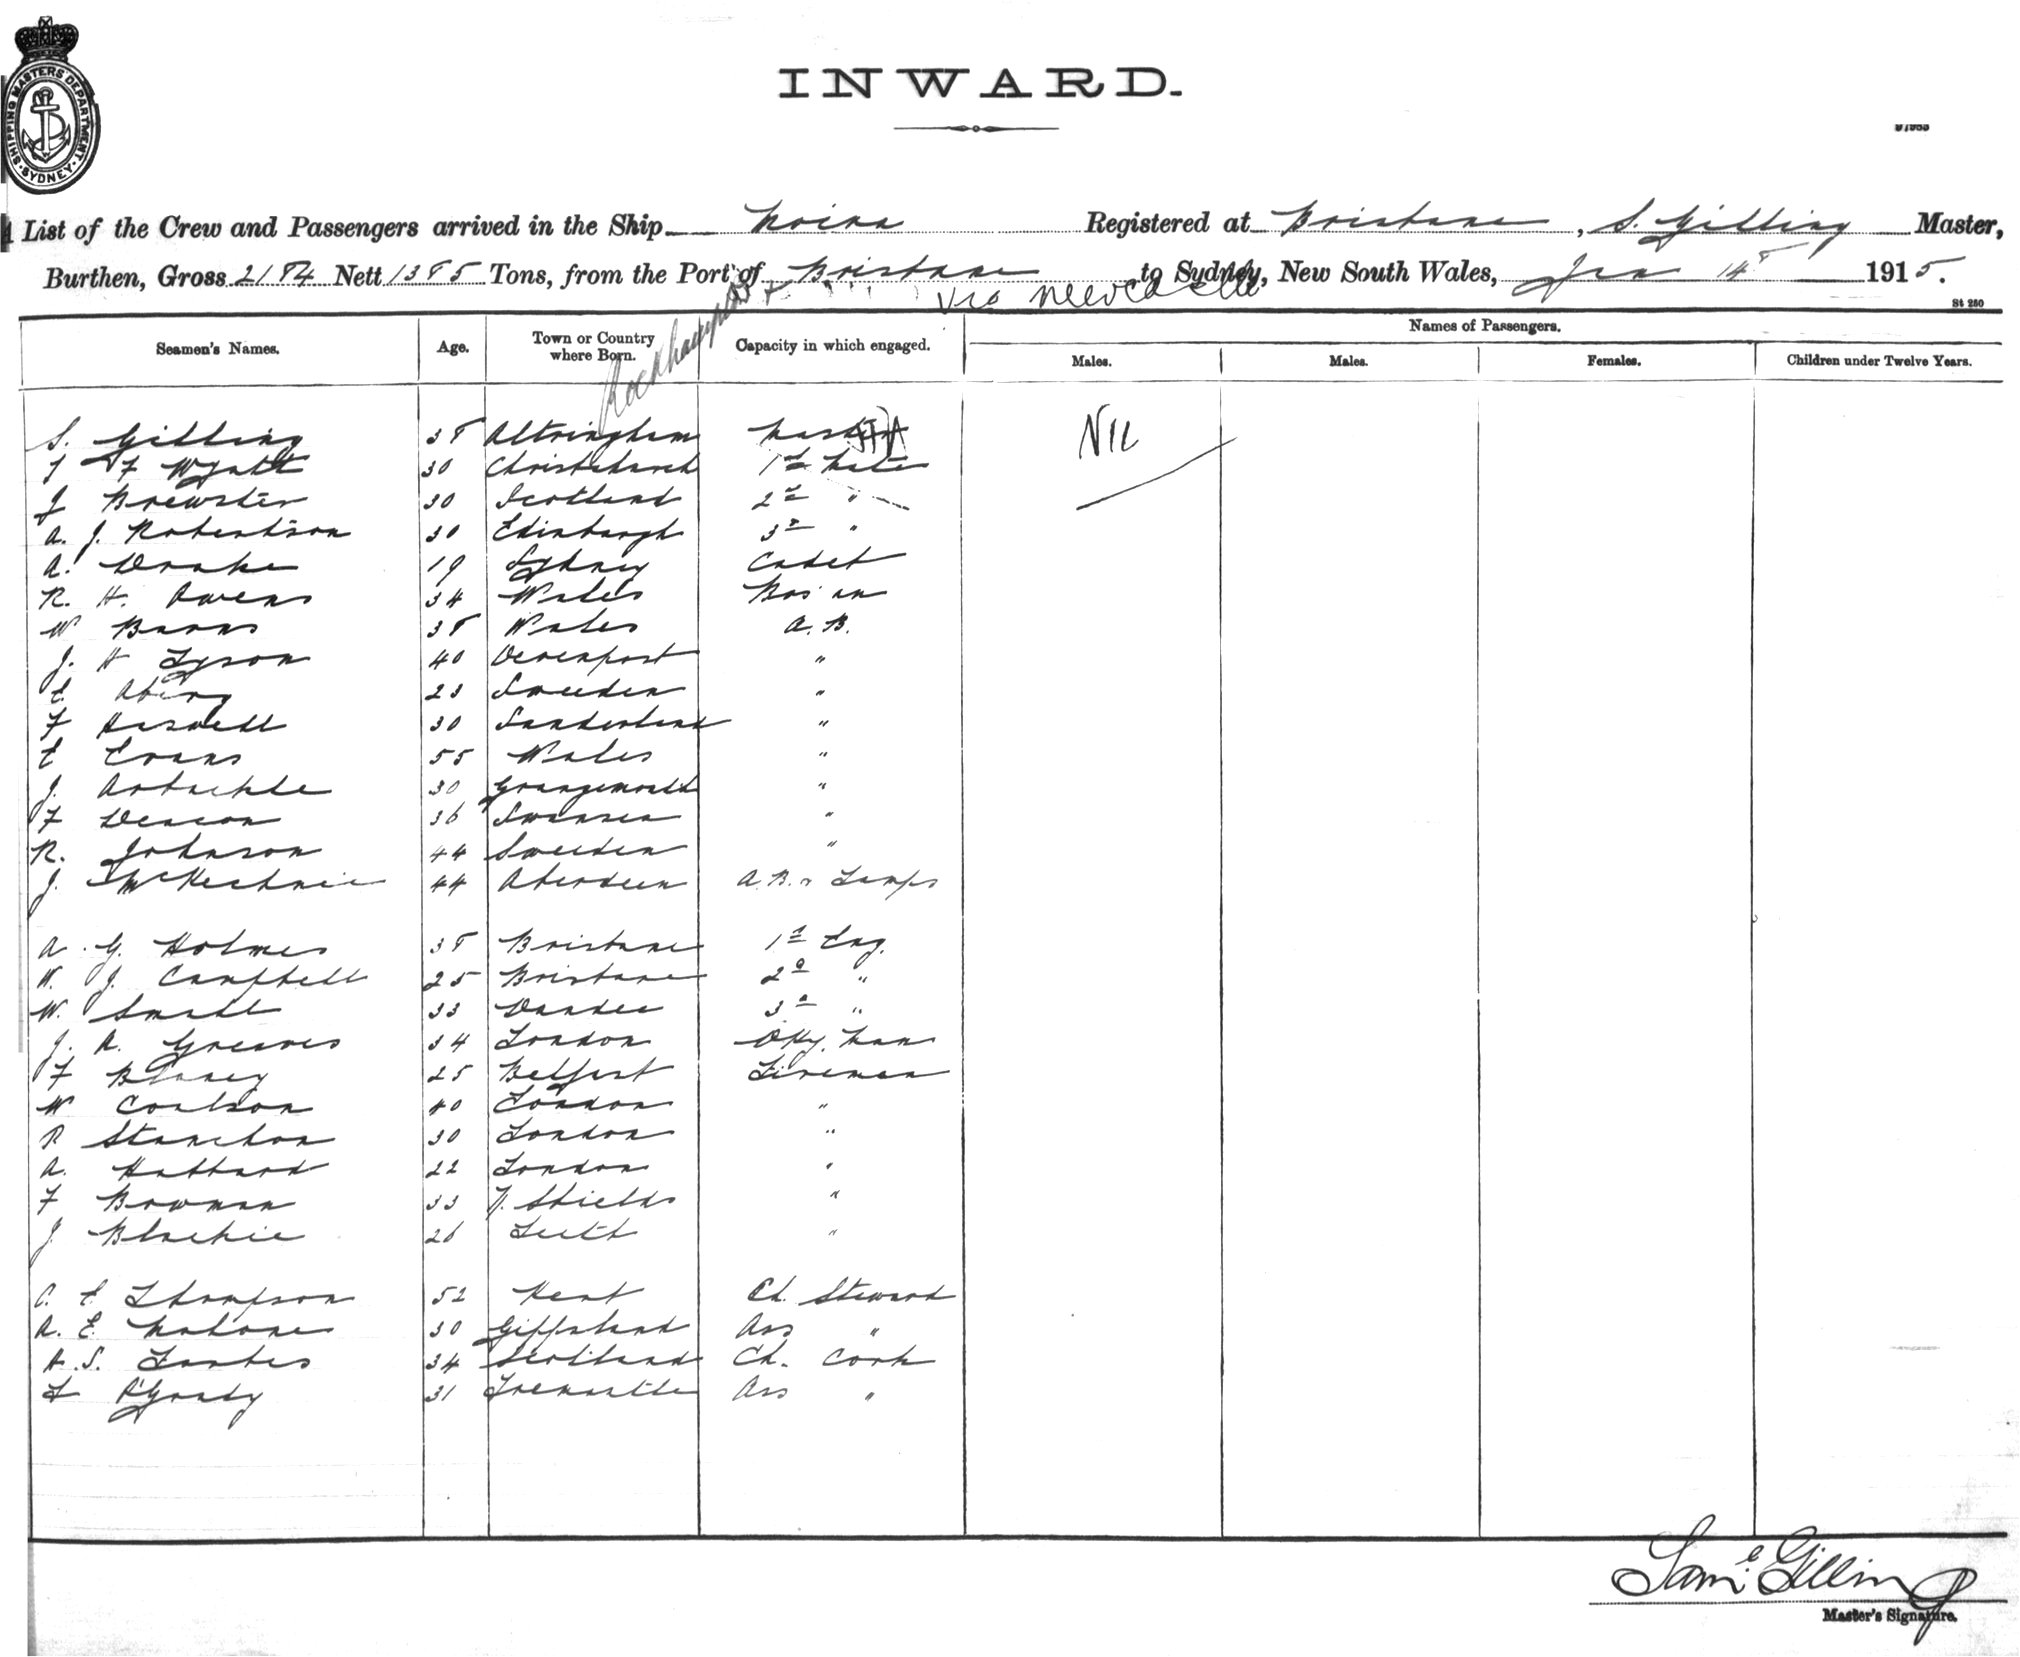 SHIPPING MASTERS DEPARTMENT. SYDNEY.
INWARD.
List of the Crew and Passengers arrived in the Ship Moira Registered at Brisbane, S. Gilling Master,
Burthen, Gross 2184 Nett 1385 Tons, from the Port of Brisbane to Sydney, New South Wales, Jan 14th 1915.
Rockhampton + via Newcastle
St 280
Seamen's Names. Age. Town or Country where Born. Capacity in which engaged. Names of Passengers.
Males. Males. Females. Children under Twelve Years.
S. Gilling 38 Altringham Master NIL
F Wyatt 30 Christchurch 1st Mate
J Brewster 30 Scotland 2nd "
A. J. Robertson 30 Edinburgh 3rd "
A. Drake 19 Sydney Cadet
R. H. Owens 34 Wales Bos'un
W Barns 38 Wales A.B.
J. H Tyson 40 Devenport "
E Aberg 23 Sweeden "
F Haswell 30 Sunderland "
E Evans 55 Wales "
J. 30 Grangemouth "
F Deacon 36 Swansea "
R. Johnson 44 Sweeden "
J. McKechnie 44 Aberdeen A.B. & Lamps
A. G. Holmes 38 Brisbane 1st Eng.
W. J. Campbell 25 Brisbane 2nd "
W. Small 33 Dundee 3rd "
J. A. Greaves 34 London Dky. Man
F Blaney 25 Belfast Fireman
W Coulson 40 London "
R Stanchon 30 London "
A. Hubbard 22 London "
F Bowman 33 N. Shields "
J Blackie 26 Leith "
C. E Thompson 52 Kent Ch. Steward
A. E. Malone 30 Gippsland Ass "
H. S. Forbes 34 Scotland Ch. Cook
L O'Grady 31 Fremantle Ass "
Saml Gilling
Master's Signature.